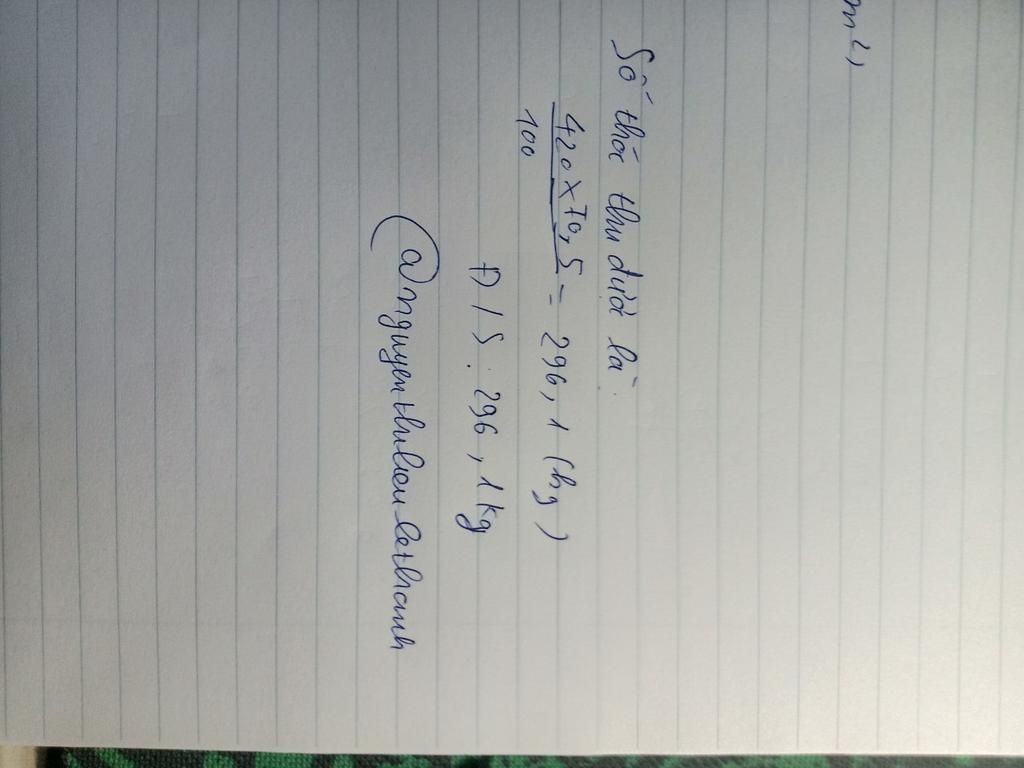 m²)
Số thóc thu được là:
420 x 70,5 = 296,1 (kg)
100
Đ/S: 296,1 kg
@nguyenthilienlethanh